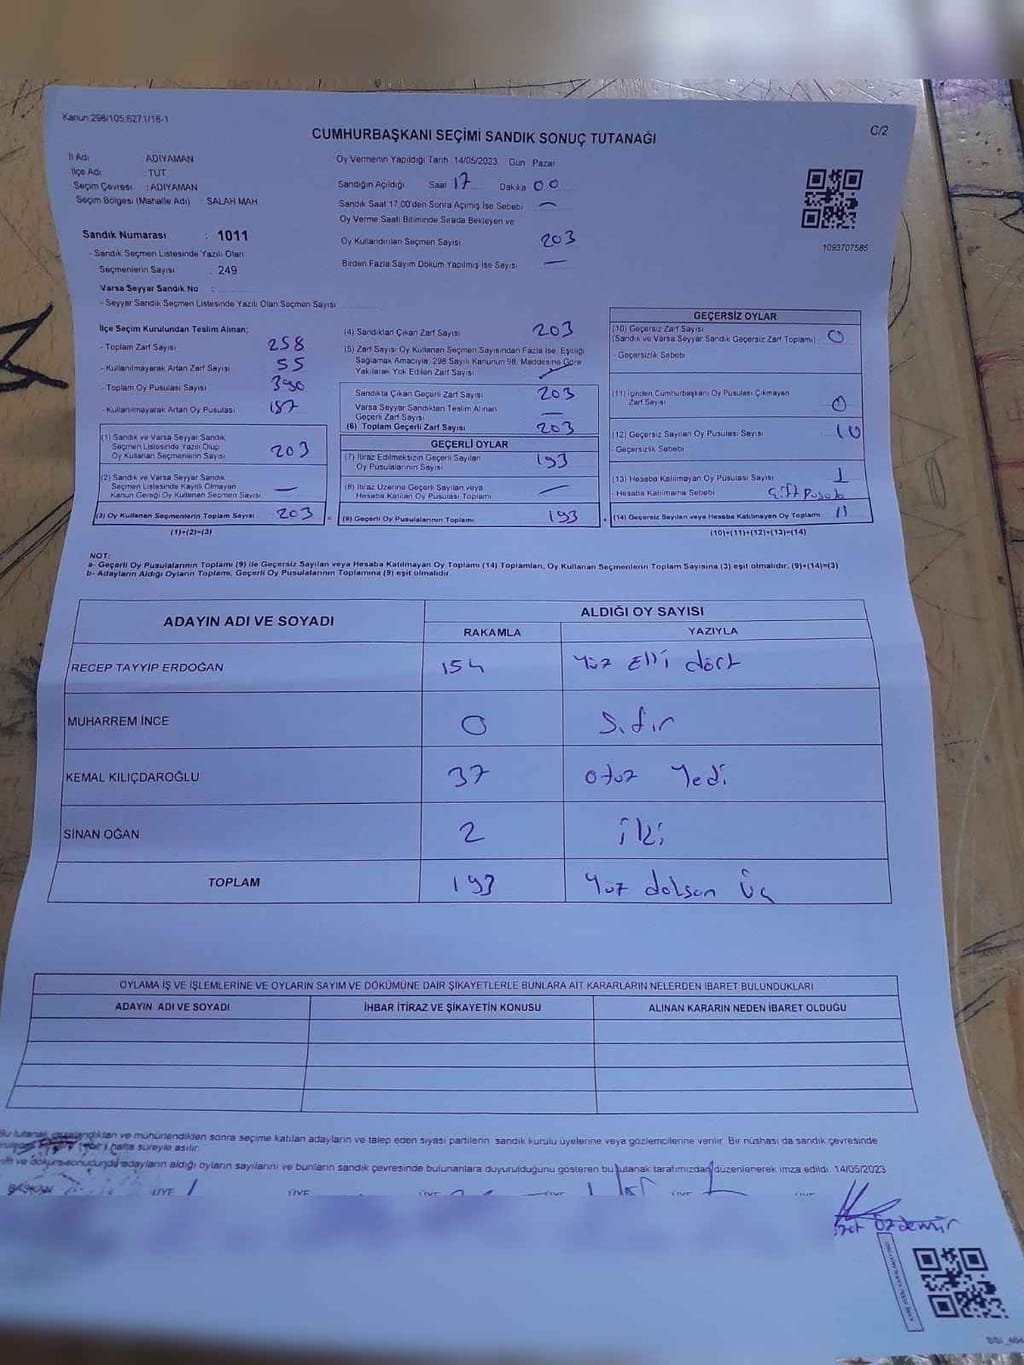 Kanun:298/105;6271/18-1
C/2
CUMHURBAŞKANI SEÇİMİ SANDIK SONUÇ TUTANAĞI
İl Adı ADIYAMAN
İlçe Adı : TUT
Seçim Çevresi : ADIYAMAN
Seçim Bölgesi (Mahalle Adı) SALAH MAH
Sandık Numarası : 1011
- Sandık Seçmen Listesinde Yazılı Olan
Seçmenlerin Sayısı : 249
Varsa Seyyar Sandık No :
- Seyyar Sandık Seçmen Listesinde Yazılı Olan Seçmen Sayısı
Oy Vermenin Yapıldığı Tarih 14/05/2023 Gün Pazar
Sandığın Açıldığı Saat 17 Dakika 00
Sandık Saat 17.00'den Sonra Açımış İse Sebebi —
Oy Verme Saati Bitiminde Sırada Bekleyen ve
Oy Kullandırılan Seçmen Sayısı 203
Birden Fazla Sayım Döküm Yapılmış İse Sayısı —
1093707585
İlçe Seçim Kurulundan Teslim Alınan;
- Toplam Zarf Sayısı 258
- Kullanılmayarak Artan Zarf Sayısı 55
- Toplam Oy Pusulası Sayısı 390
- Kullanılmayarak Artan Oy Pusulası 187
(1) Sandık ve Varsa Seyyar Sandık
Seçmen Listesinde Yazılı Olup
Oy Kullanan Seçmenlerin Sayısı 203
(2) Sandık ve Varsa Seyyar Sandık
Seçmen Listesinde Kayıtlı Olmayan
Kanun Gereği Oy Kullanan Seçmen Sayısı —
(3) Oy Kullanan Seçmenlerin Toplam Sayısı 203
(1)+(2)=(3)
(4) Sandıktan Çıkan Zarf Sayısı 203
(5) Zarf Sayısı Oy Kullanan Seçmen Sayısından Fazla İse, Eşitliği
Sağlamak Amacıyla; 298 Sayılı Kanunun 98. Maddesine Göre
Yakılarak Yok Edilen Zarf Sayısı
Sandıkta Çıkan Geçerli Zarf Sayısı 203
Varsa Seyyar Sandıktan Teslim Alınan
Geçerli Zarf Sayısı —
(6) Toplam Geçerli Zarf Sayısı 203
GEÇERLİ OYLAR
(7) İtiraz Edilmeksizin Geçerli Sayılan
Oy Pusulalarının Sayısı 193
(8) İtiraz Üzerine Geçerli Sayılan veya
Hesaba Katılan Oy Pusulası Toplamı —
= (9) Geçerli Oy Pusulalarının Toplamı 193
GEÇERSİZ OYLAR
(10) Geçersiz Zarf Sayısı
(Sandık ve Varsa Seyyar Sandık Geçersiz Zarf Toplamı) 0
- Geçersizlik Sebebi
(11) İçinden Cumhurbaşkanı Oy Pusulası Çıkmayan
Zarf Sayısı 0
(12) Geçersiz Sayılan Oy Pusulası Sayısı 10
- Geçersizlik Sebebi
(13) Hesaba Katılmayan Oy Pusulası Sayısı 1
Hesaba Katılmama Sebebi Çift Pusula
+ (14) Geçersiz Sayılan veya Hesaba Katılmayan Oy Toplamı 11
(10)+(11)+(12)+(13)=(14)
NOT:
a- Geçerli Oy Pusulalarının Toplamı (9) ile Geçersiz Sayılan veya Hesaba Katılmayan Oy Toplamı (14) Toplamları, Oy Kullanan Seçmenlerin Toplam Sayısına (3) eşit olmalıdır. (9)+(14)=(3)
b- Adayların Aldığı Oyların Toplamı, Geçerli Oy Pusulalarının Toplamına (9) eşit olmalıdır.
ADAYIN ADI VE SOYADI
ALDIĞI OY SAYISI
RAKAMLA YAZIYLA
RECEP TAYYİP ERDOĞAN 154 Yüz Elli dört
MUHARREM İNCE 0 Sıfır
KEMAL KILIÇDAROĞLU 37 otuz Yedi
SİNAN OĞAN 2 iki
TOPLAM 193 Yüz doksan Üç
OYLAMA İŞ VE İŞLEMLERİNE VE OYLARIN SAYIM VE DÖKÜMÜNE DAİR ŞİKAYETLERLE BUNLARA AİT KARARLARIN NELERDEN İBARET BULUNDUKLARI
ADAYIN ADI VE SOYADI İHBAR İTİRAZ VE ŞİKAYETİN KONUSU ALINAN KARARIN NEDEN İBARET OLDUĞU
Bu tutanak imzalandıktan ve mühürlendikten sonra seçime katılan adayların ve talep eden siyasi partilerin sandık kurulu üyelerine veya gözlemcilerine verilir. Bir nüshası da sandık çevresinde
hafta süreyle asılır.
ve dökümü sonucunda adayların aldığı oyların sayılarını ve bunların sandık çevresinde bulunanlara duyurulduğunu gösteren bu tutanak tarafımızdan düzenlenerek imza edildi. 14/05/2023
BAŞKAN ÜYE ÜYE ÜYE ÜYE ÜYE ÜYE
Özdemir